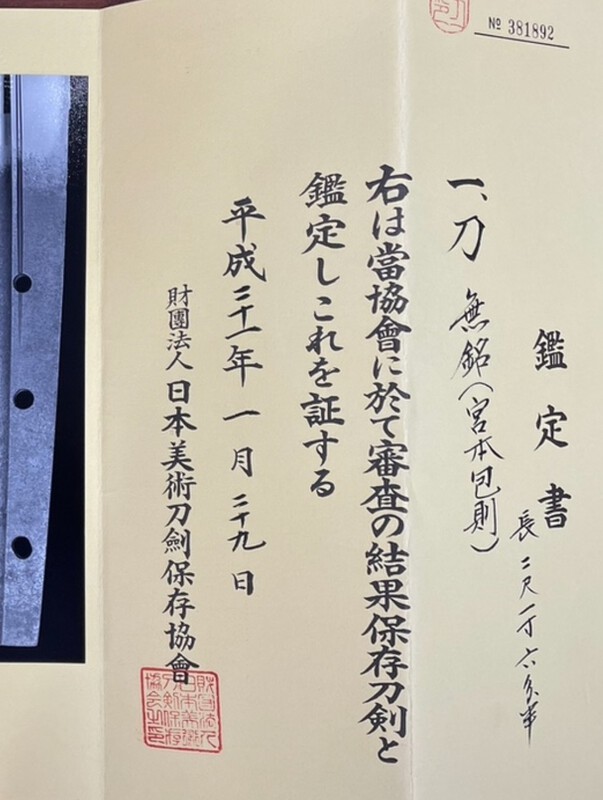 № 381892
鑑定書
長 二尺一寸六分半
一、刀 無銘(宮本包則)
右は當協會に於て審査の結果保存刀剣と
鑑定しこれを証する
平成二十一年一月二十九日
財團法人日本美術刀劍保存協會